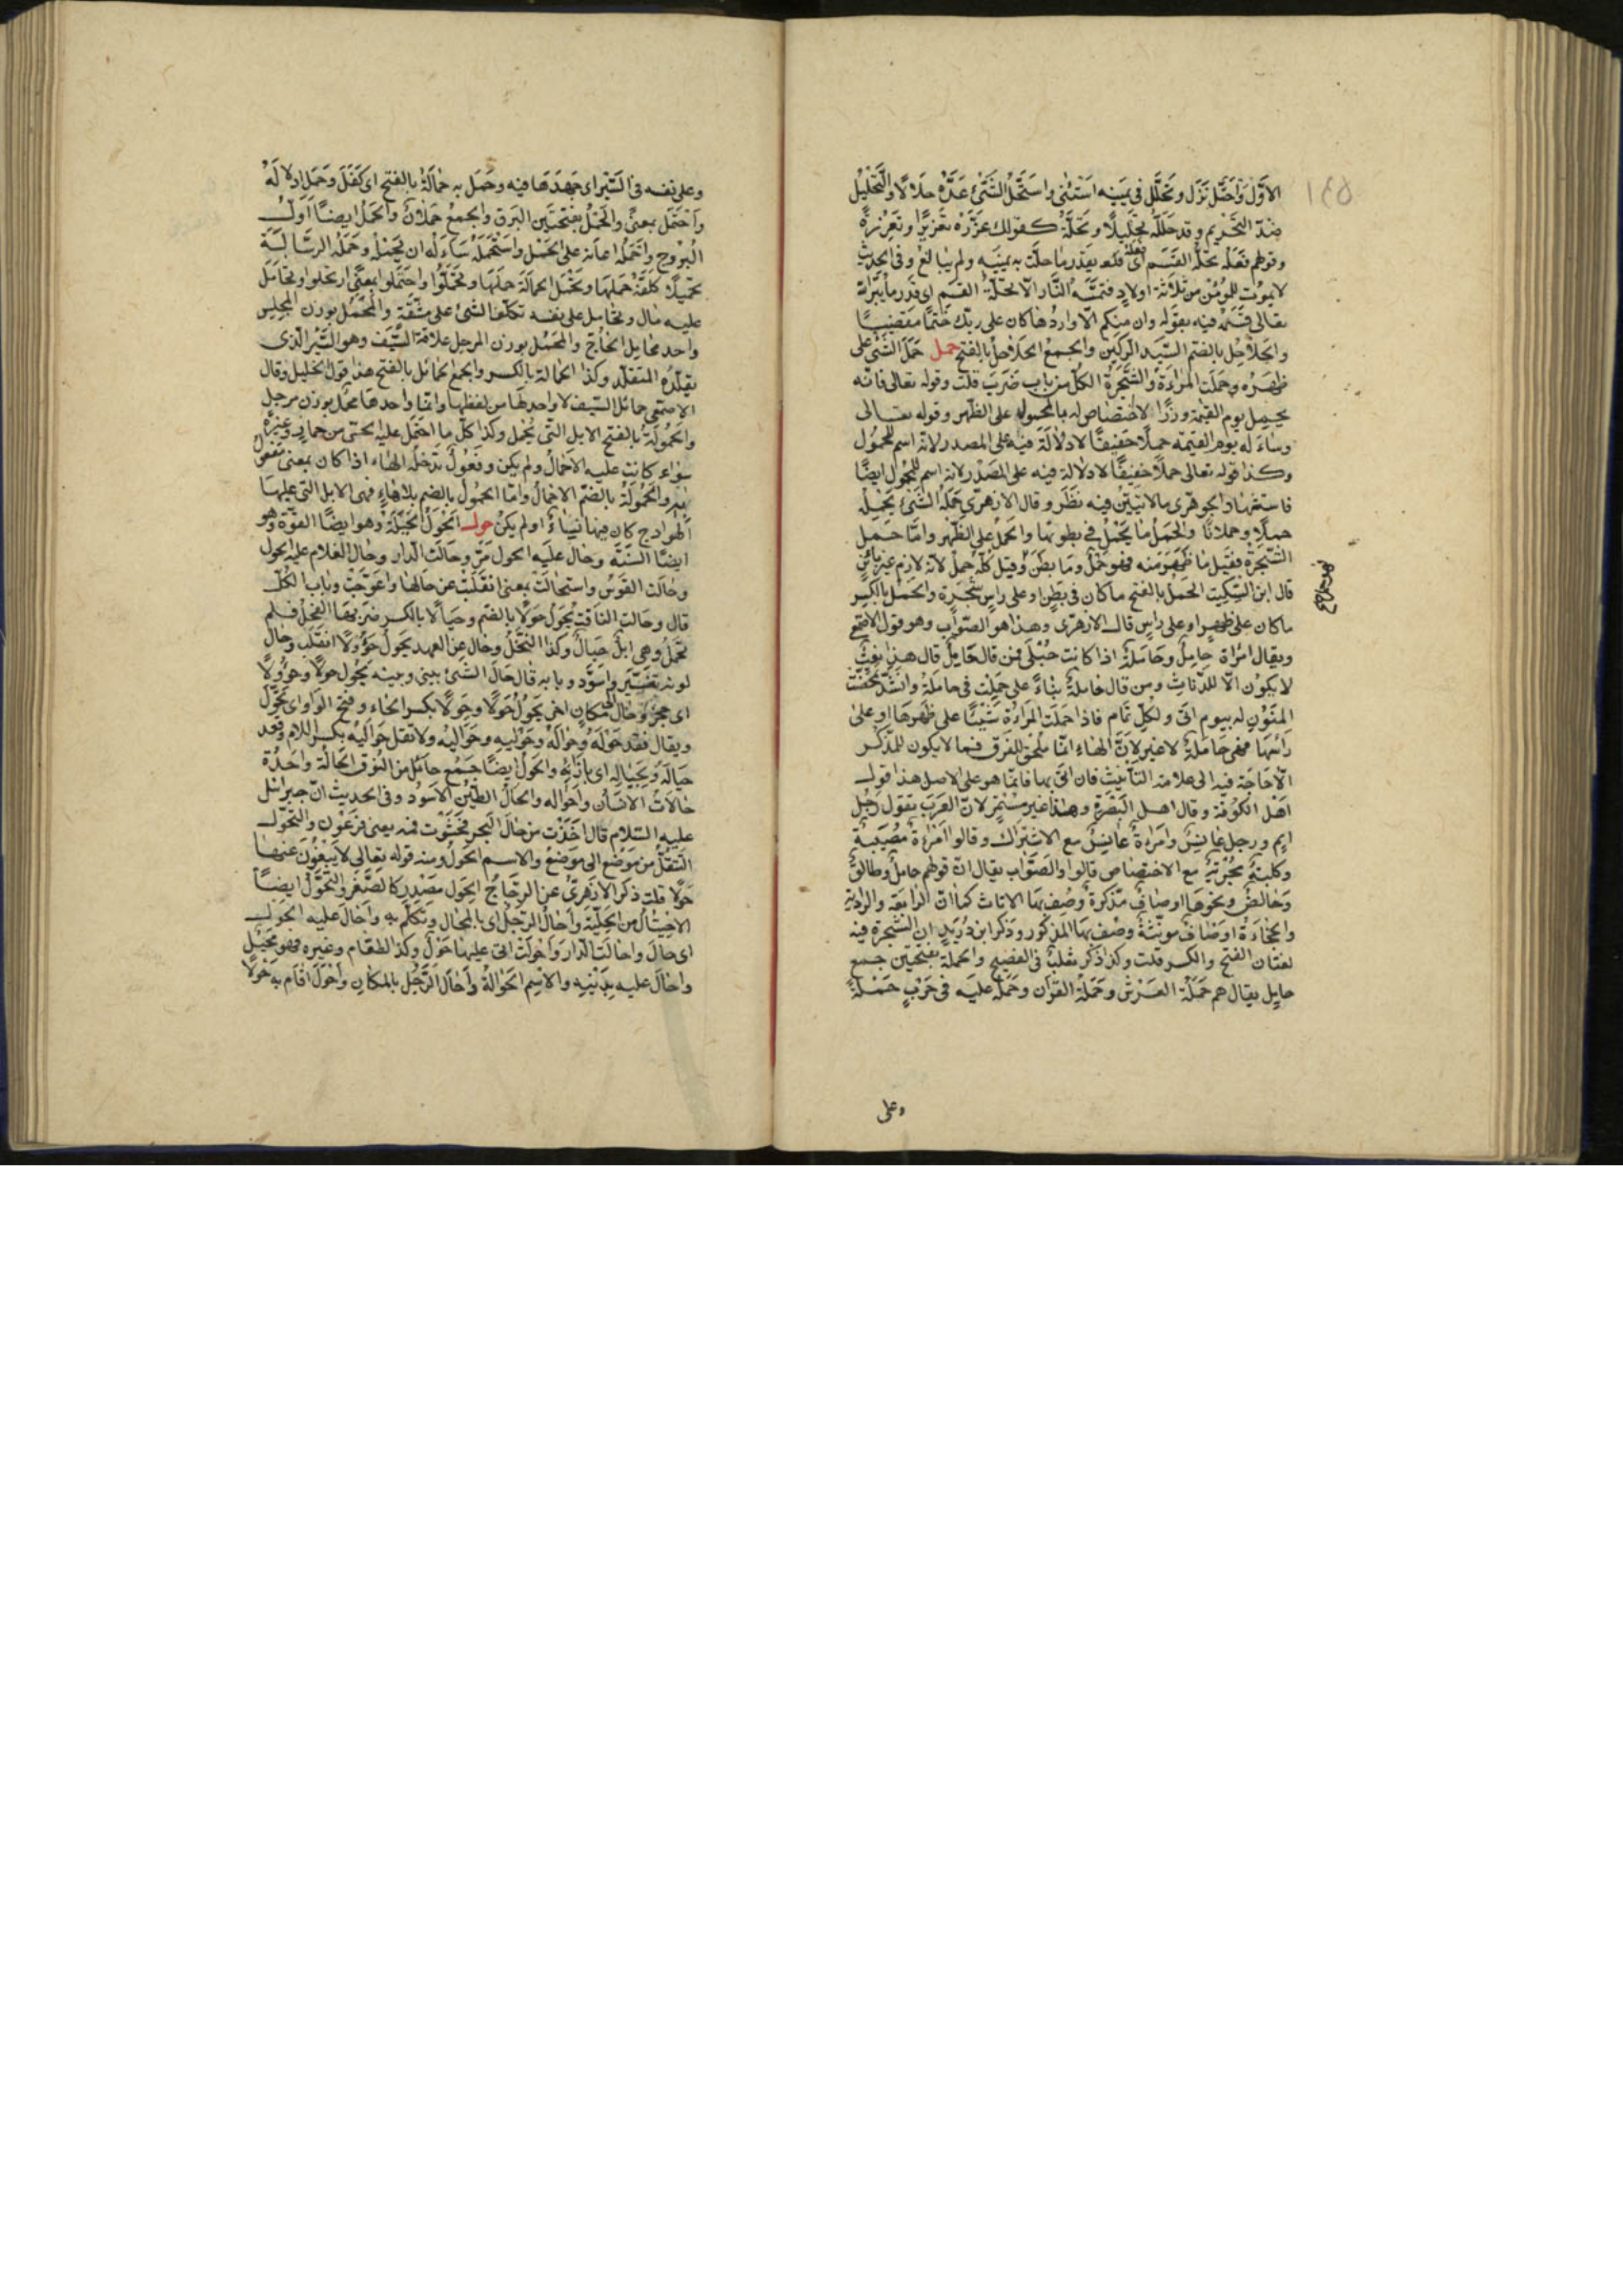 ١٤٥
الاَوّل وَاحْتَلّ نَزَل وتحَلَّل في يَمينِه اسْتَثنى واسْتَحَلّ الشَّئ عَدَّهُ حلَالًا والتَّحْلِيْلُ
ضِدّ التَّحْرِيم وقد حَلَّلَهُ تَحْلِيلًا وتَحِلَّةً كقولك عَزَّزَهُ تَعْزِيزًا وتَعِزَّةً
وقولهم فَعَلَه تحِلَّة القَسَم اى فعله بقَدْر ما حلّت به يَمِيْنه ولم يُبالغ وفى الحديث
لا يموت للمؤمن ثلاثة اولاد فتمسّه النّار الّا تحلّة القسم اى قدر ما يُبَرّ الله
تعالى قسَمَه فيه بقوله وان منكم الّا واردها كان على ربّك حَتْمًا مَقْضِيًّا
والحُلَاحِل بالضّم السَّيّد الرَّكين والجمع الحَلَاحِل بالفتح حمل حَمَلَ الشّئ على
ظَهره وحَمَلَت المرْاَة والشَّجَرَة الكلّ من باب ضَرَبَ قلت وقوله تعالى فانّه
يحمل يوم القيٰمة وزرًا لا اختصاص له بالمحمول على الظّهر وقوله تعالى
وساءَ له يوم القيٰمة حملًا خفيفًا لا دلالة فيه على المصدر لانّه اسم للمحمُول
وكذا قوله تعالى حملًا خفيفًا لا دلالة فيه على المَصْدر لانه اسم للمحمُول ايضًا
فاستشهاد الجوهرى بالايتين فيه نَظَر وقال الازهرّى حَمَلَ الشّئ يَحْمِلُه
حملًا وحملانًا والحَمْلُ ما يُحْمَلُ في بطونها والحِمْلُ على الظّهر وامّا حَمْل
الشّجَرَة فقيل ما ظَهَر منه فهو حِمْلٌ وما بَطَنَ وقيل كلّه حمل لانّه لازم غير بائن
قال ابن السّكّيت الحَمل بالفتح ما كان في بَطن او على راسِ شَجَرَة والحمل بالكسر
ما كان على ظهر او على راس قال الازهرى وهذا هو الصّوَاب وهو قول الاصمعى
ويقال امْرَاة حامِل وحامِلَةٌ اذا كانت حُبْلَى فمن قال حامِلٌ قال هذا نعْت
لا يكون الّا للاناث ومن قال حاملة بَناهُ على حَمَلَتْ فهى حاملة وانشد تمخّضت
المَنُون له بيوم انى ولكلّ تمام فاذا حَمَلَت المَرْاَة شَيْئًا على ظَهرها او على
رَاسها فهى حَاملة لا غير لاَنَّ الهاء انما تلحق للفرق فما لا يكون للمذكّر
لا حَاجَة فيه الى علامة التأنيث فان اتى بها فانّما هو على الاصل هذا قول
اهل الكوفة وقال اهل البَصْرَة وهذا غير مستمرّ لانّ العرب تقول رجُل
ايِّم ورجل عانِسٌ وامْرَاة عانِسٌ مع الاشتراك وقالوا امْرَاة مُصْبِيَة
وكلبة مُجْرِيَة مع الاختصاص قالوا والصَّوَاب يقال انّ قولهم حامل وطالق
وحائض ونحوها اوصاف مذكرة وُصِف بها الاناث كما انّ الرّبْعَة والرّاوية
والخُجَأة اوصاف مونّثة وُصف بها المذكور وذكر ابن دُرَيدٍ انّ الشّجرة فيه
لغتان الفتح والكسر قلت وكذا ذكر ثعلب في الفصيح والحملة بفتحتين جمع
حامل يقال هم حَمَلَة العَرْش وحَمَلَة القرآن وحَمَلَ عليه في حَرْبٍ حَمْلَةً
وعلى
وعلى نفسه في السَّيْر اى جَهَدَهَا فيه وحَمَل به حمَالَةً بالفتح اى كَفَل وحَمَل ادلاله
واحْتَمَل بمعنًى والحَمَلُ بفتحتين البرَق والجمع حُمْلانٌ والحَمَل ايضًا اوّلُ
البُرُوج واحْمَلَه اعانه على الحَمْل واسْتَحْمَلَهُ ساَلَه ان يَحْمِلَهُ وحَمَّلَه الرسَالَة
تحميلًا كَلّفَهُ حَمْلَها وتحَمّل الحمالَة حَمَلَها وتَحَمَّلُوا واحتَمَلوا بمعنًى ارتحلوا وتحامَل
عليه مال وتحامل على نفسه تكلّف الشّئ على مشَقّةٍ والمَحْمِل بوزن المجلِس
واحد محامِل الحاجّ والمِحْمَل بوزن المرجل علاقة السَّيْف وهو السَّيْر الّذى
يقلّده المتقلّد وكذا الحمالة بالكسر والجمع حمائل بالفتح هذا قول الخليل وقال
الاصمعى حمائل السّيف لا واحد لها من لفظها وانما واحدها محمَل بوزن مرجل
والحَمُولَة بالفتح الابل التى تحمل وكذا كلّ ما احتمل عليه الحىّ من حمار وغيره
سواء كانت عليه الاحمال ولم يكن وفَعُولٌ تدخله الهاء اذا كان بمعنى مفعول
بها والحُمُولَة بالضّم الاحمال وامّا الحمول بالضم بلا هاءٍ فهى الابل التى عليها
الهوادج كان فيها نِسَاءٌ او لم يكن حول الحَوْلُ الحِيْلَة وهو ايضًا القوّة وهو
ايضًا السّنَة وحال عليه الحول مَرَّ وحالَت الدّار وحال الغلام عليه الحول
وحالت القَوْسُ واستحالَت بمعنى انقَلَبَتْ عن حالها واعْوَجّتْ وباب الكلّ
قال وحالت الناقة تَحُول حُوْلًا بالضّم وحيَالًا بالكسر ضربها الفحل فلم
تَحْمِل وهى ابلٌ حيَالٌ وكذا النّخْل وحال عن العهد يَحُول حؤُولًا انقلب وحال
لونه تغيّر واسوَدّ وبابه قال حالَ الشّئ بينى وبينه يَحُول حولًا وحؤُولًا
اى حجز وحال الى مكان آخر يَحُول حَوْلًا وحِوَلًا بكسر الحاء وفتح الواو اى تحوّل
ويقال قَعَد حَوْلَهُ وحَوَالَهُ وحَوْليْهِ وحَوَاليْهِ ولا تقل حَوَاليْهِ بكسر اللام وقعد
حِيَالَه وبحِيَالِه اى بازَائه والحُوْل ايضًا جَمْع حائل من النّوق والحالَة واحدة
حالات الانسان واحْواله والحَالُ الطّيْن الاسود وفى الحديث انّ جبرائيل
عليه السّلام قال اَخَذْت من حال البحر فحَشَوْت فمَه يعنى فِرعَوْن والتّحوّل
التنقّل من مَوْضع الى مَوْضِع والاسم الحِوَل ومنه قوله تعالى لا يَبْغُوْنَ عنها
حِوَلًا قلت ذكر الازهَرِىّ عن الزجّاج الحِوَل مَصْدر كالصِّغَر والتّحوّل ايضًا
الاحْتِيال من الحِيْلَة واَحال الرّجُل اى بالمحال وتكَلَّم به وَاَحال عليه الحَوْل
اى حال واحالت الدّار وَاَحْولت اتى عليها حَوْلٌ وكذا الطعام وغيره فهو مُحِيْل
واحال عليه بِدَيْنِه والاسم الحَوَالة وَاَحال الرّجُل بالمكان وَاَحْوَل اقام به حَوْلًا